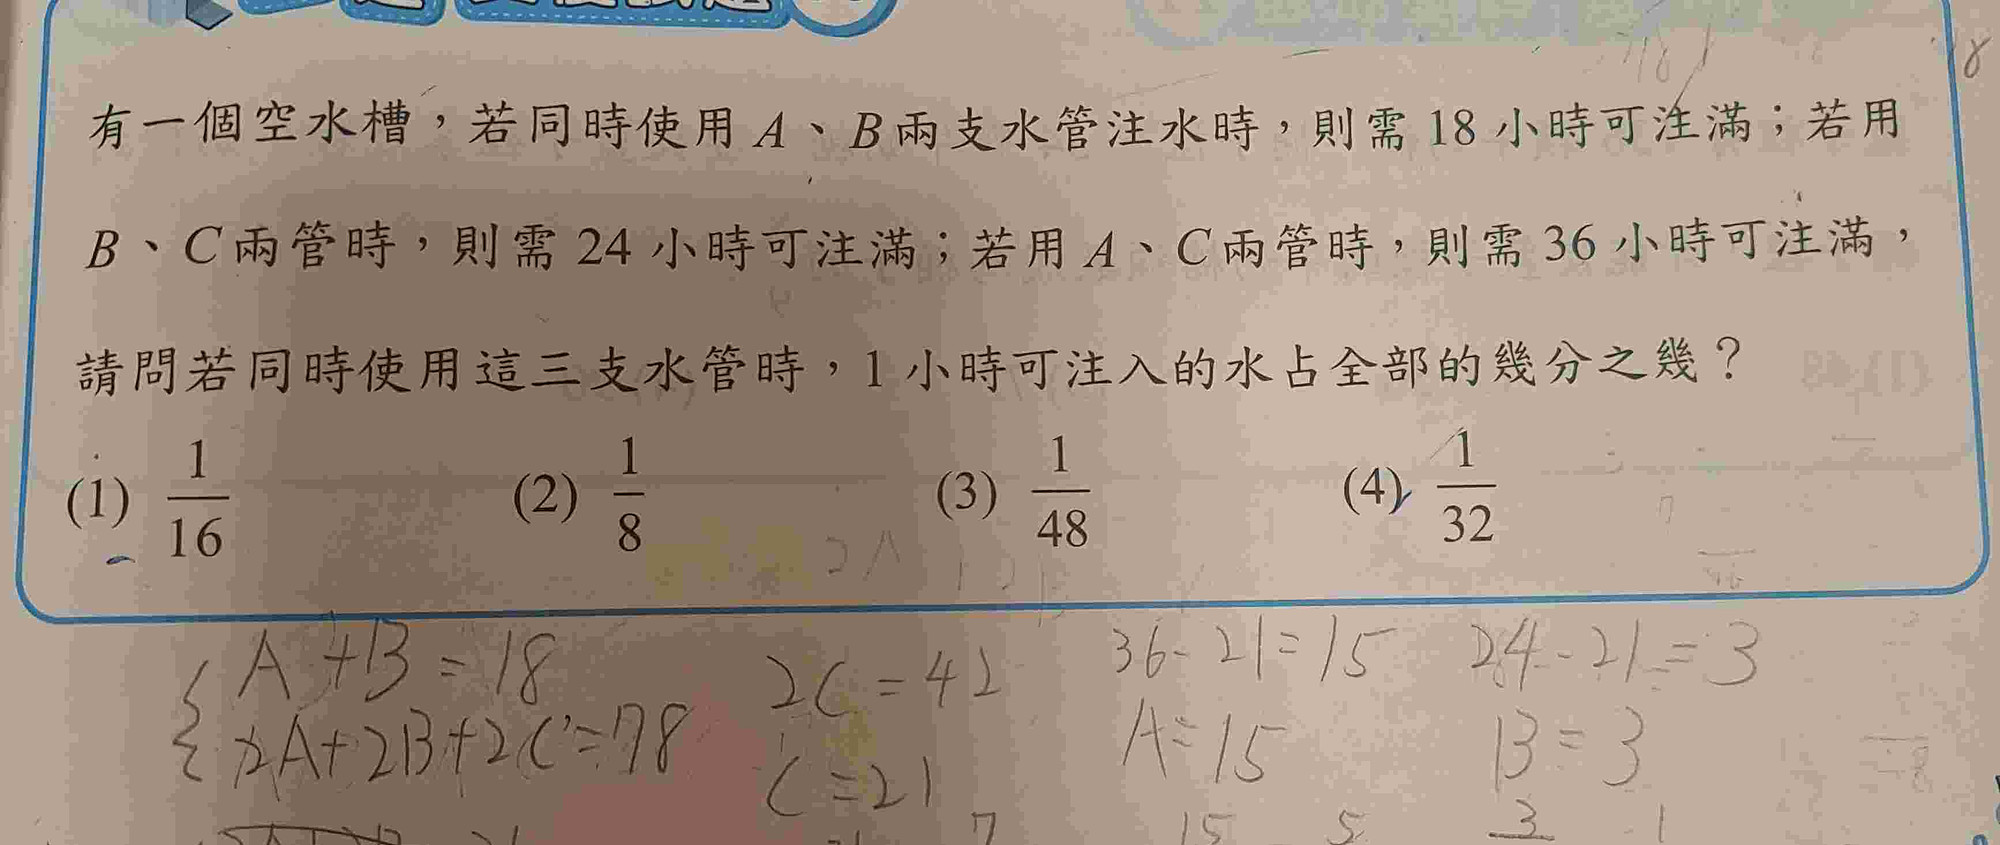 有一個空水槽，若同時使用 A、B 兩支水管注水時，則需 18 小時可注滿；若用
B、C 兩管時，則需 24 小時可注滿；若用 A、C 兩管時，則需 36 小時可注滿，
請問若同時使用這三支水管時，1 小時可注入的水占全部的幾分之幾？
(1) 1/16 (2) 1/8 (3) 1/48 (4) 1/32
A+B=18 2C=42 36-21=15 24-21=3
2A+2B+2C=78 C=21 A=15 B=3